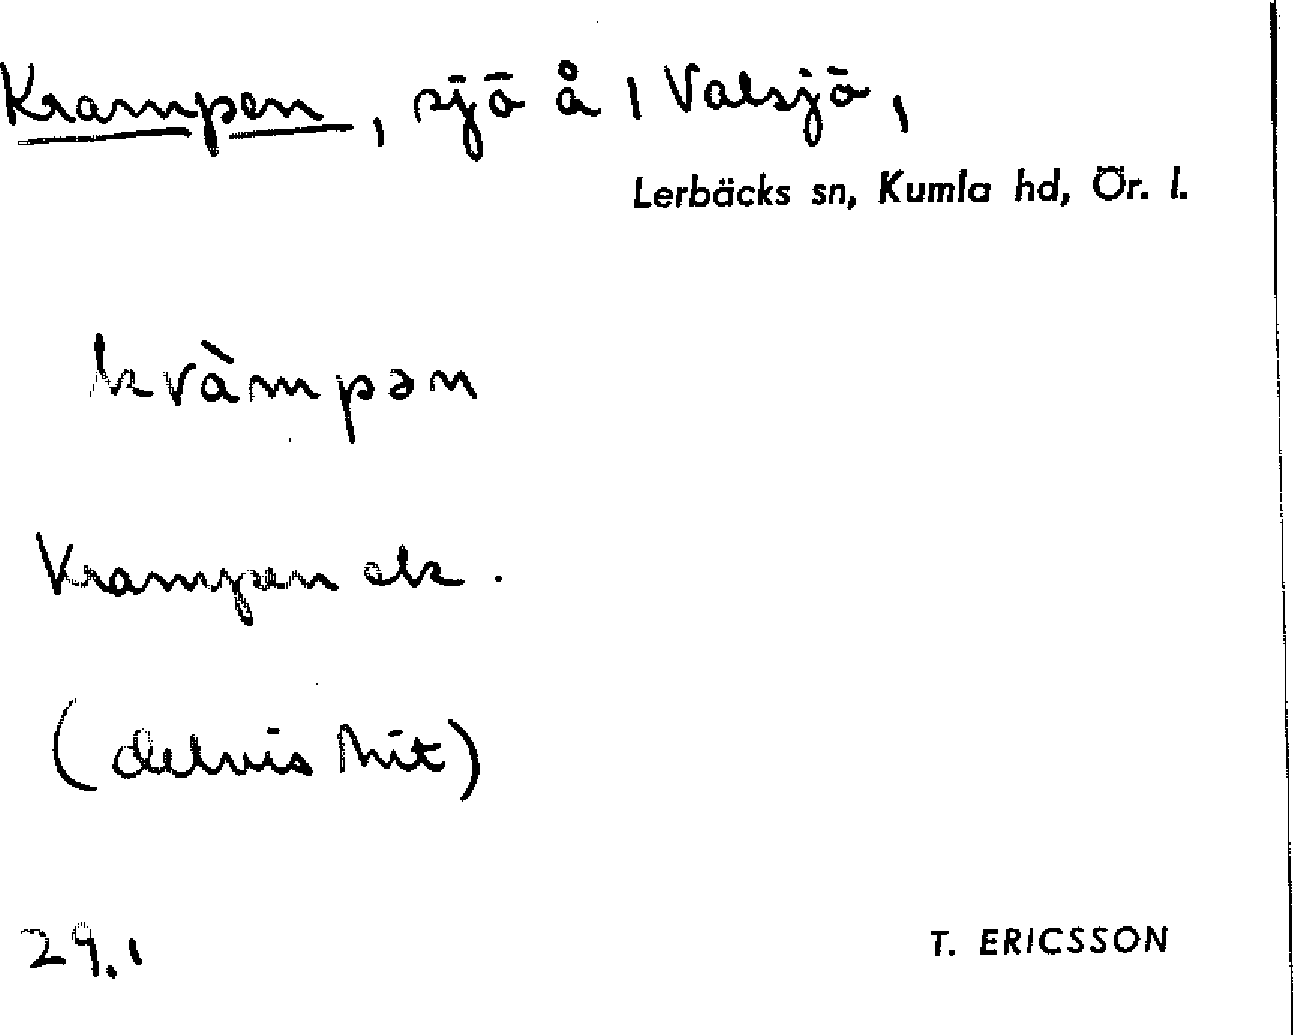 Krampen, sjö å 1 Valsjö,
Lerbäcks sn, Kumla hd, Ör. l.
kràmpən
Krampen ek.
(delvis hit)
29.1
T. ERICSSON